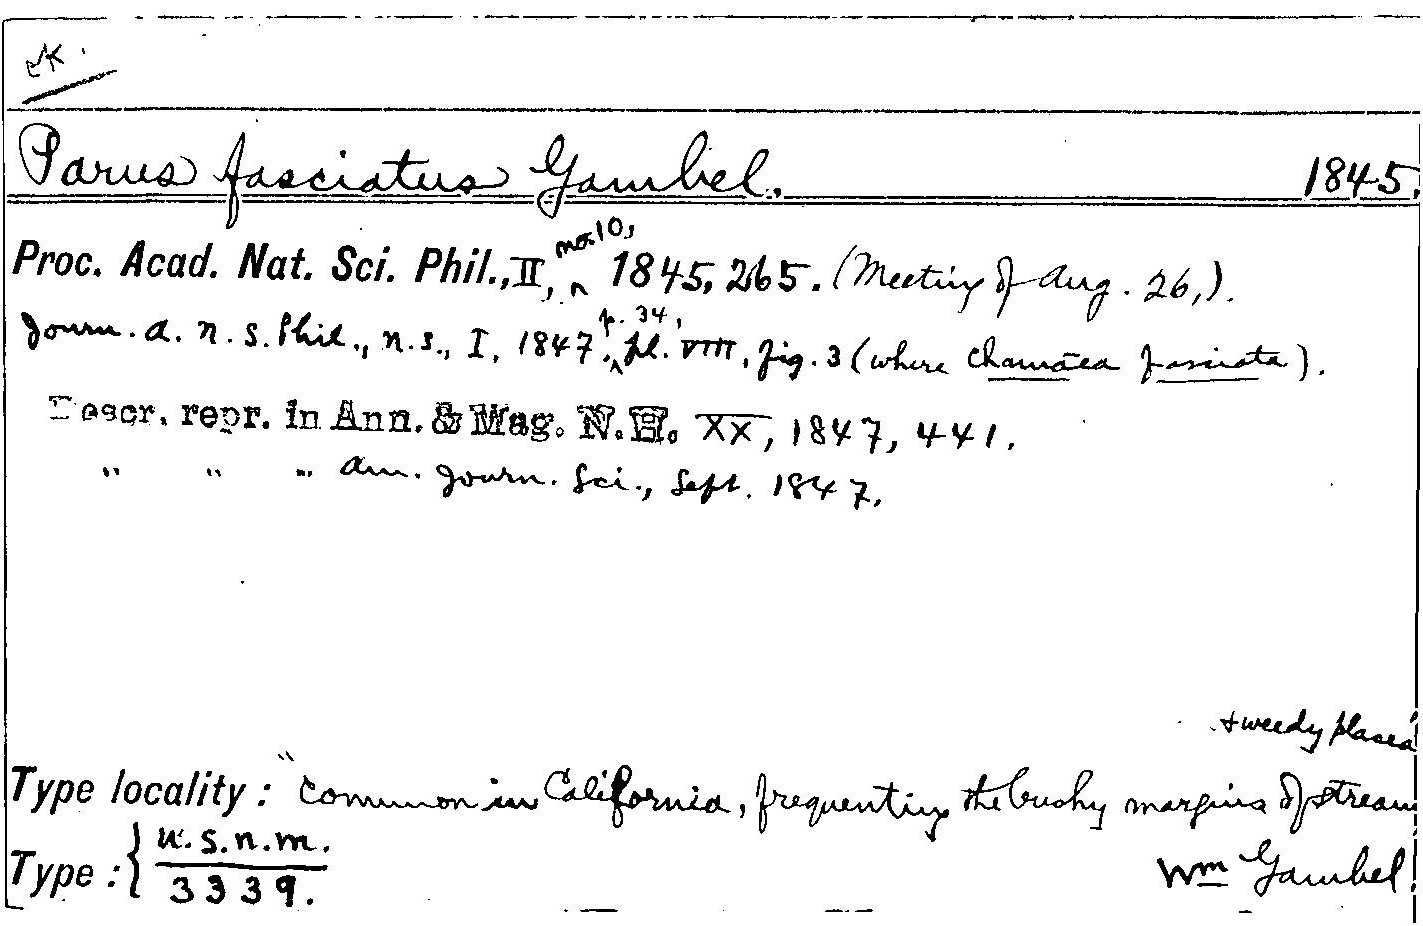 Parus fasciatus Gambel. 1845.
Proc. Acad. Nat. Sci. Phil., II, no. 10, 1845, 265. (Meeting of Aug. 26,).
Journ. A. N. S. Phil., n.s., I, 1847, p. 34, pl. VIII, fig. 3 (where Chamæa fasciata).
Descr. repr. in Ann. & Mag. N. H. XX, 1847, 441.
" " " Am. Journ. Sci., Sept. 1847.
+ weedy places"
Type locality: "Common in California, frequenting the bushy margins of stream
Type: { U.S.N.M.
3339.
Wm Gambel.